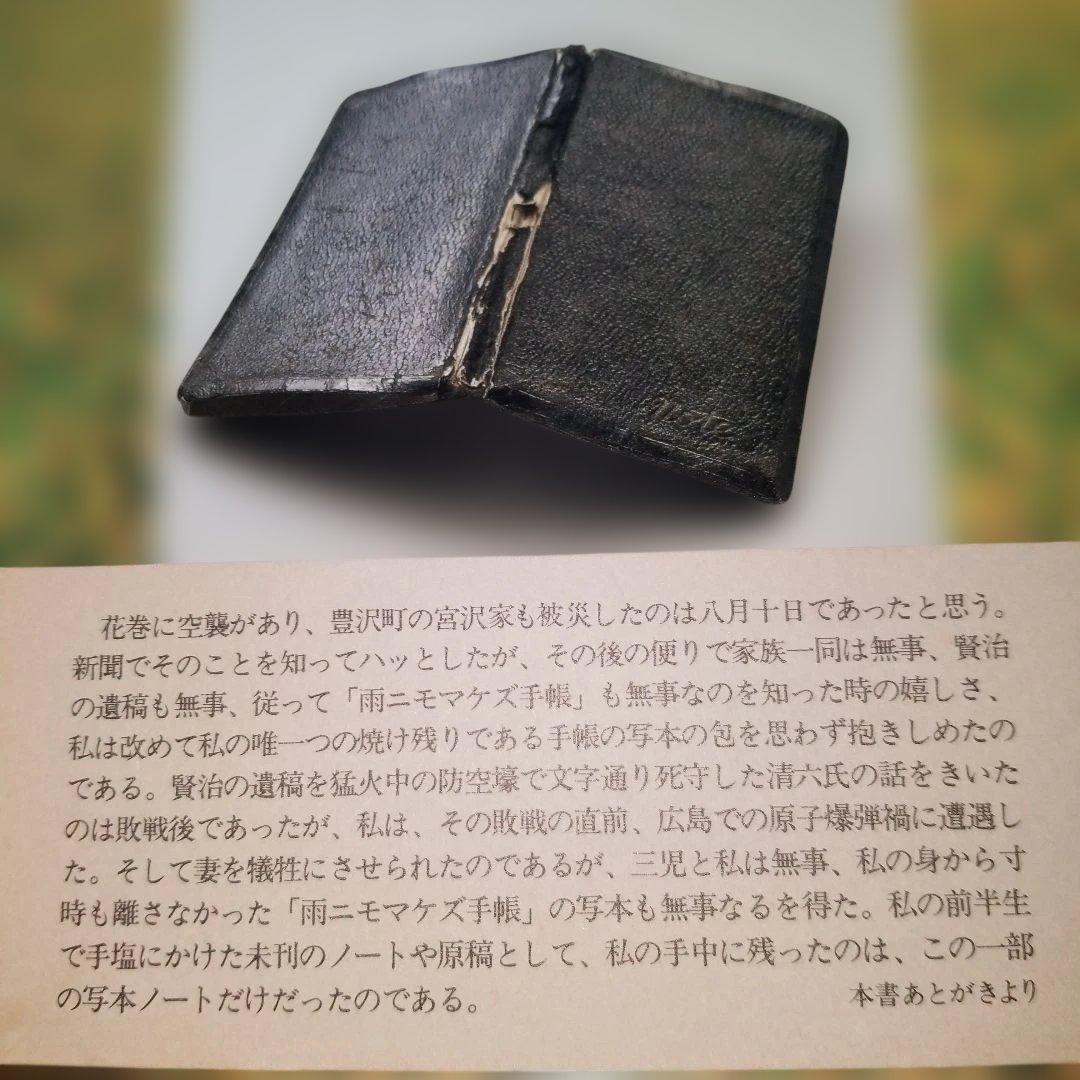 花巻に空襲があり、豊沢町の宮沢家も被災したのは八月十日であったと思う。
新聞でそのことを知ってハッとしたが、その後の便りで家族一同は無事、賢治
の遺稿も無事、従って「雨ニモマケズ手帳」も無事なのを知った時の嬉しさ、
私は改めて私の唯一つの焼け残りである手帳の写本の包を思わず抱きしめたの
である。賢治の遺稿を猛火中の防空壕で文字通り死守した清六氏の話をきいた
のは敗戦後であったが、私は、その敗戦の直前、広島での原子爆弾禍に遭遇し
た。そして妻を犠牲にさせられたのであるが、三児と私は無事、私の身から寸
時も離さなかった「雨ニモマケズ手帳」の写本も無事なるを得た。私の前半生
で手塩にかけた未刊のノートや原稿として、私の手中に残ったのは、この一部
の写本ノートだけだったのである。
本書あとがきより